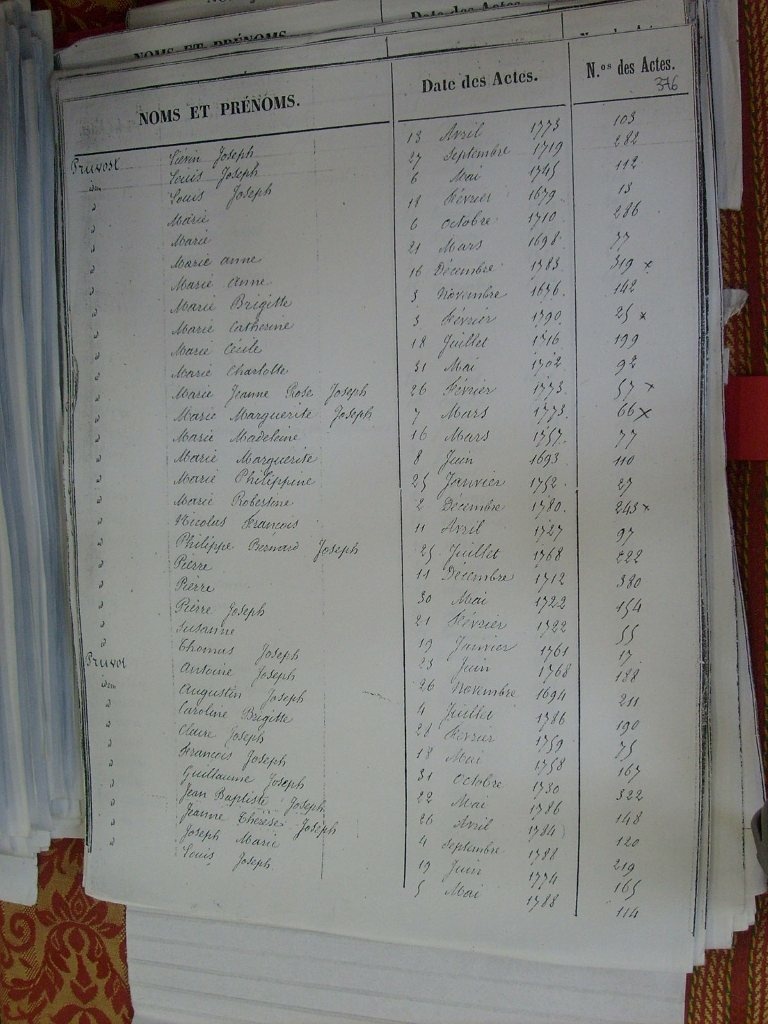 Date des Actes
NOMS ET PRÉNOMS.
NOMS ET PRÉNOMS. Date des Actes. N.os des Actes.
376
Pruvost Liévin Joseph 13 Avril 1773 103
idem Louis Joseph 27 Septembre 1719 282
d Louis Joseph 6 Mai 1745 112
d Marie 18 Février 1679 13
d Marie 6 Octobre 1710 286
d Marie anne 21 Mars 1698 77
d Marie Anne 16 Décembre 1783 319 x
d Marie Brigitte 3 Novembre 1676 142
d Marie Catherine 3 Février 1790 25 x
d Marie Cécile 18 Juillet 1716 199
d Marie Charlotte 31 Mai 1702 92
d Marie Jeanne Rose Joseph 26 Février 1773 57 x
d Marie Marguerite Joseph 7 Mars 1773 66 x
d Marie Madeleine 16 Mars 1757 77
d Marie Marguerite 8 Juin 1693 110
d Marie Philippine 25 Janvier 1752 27
d Marie Robertine 2 Décembre 1780 243 x
d Nicolas François 11 Avril 1727 97
d Philippe Bernard Joseph 25 Juillet 1768 222
d Pierre 11 Décembre 1712 380
d Pierre 30 Mai 1722 154
d Pierre Joseph 21 Février 1722 55
d Susanne 19 Janvier 1761 17
d Thomas Joseph 23 Juin 1768 188
Pruvot Antoine Joseph 26 Novembre 1694 211
idem Augustin Joseph 4 Juillet 1786 190
d Caroline Brigitte 28 Février 1759 75
d Joseph 18 Mai 1758 167
d François Joseph 31 Octobre 1730 322
d Guillaume Joseph 22 Mai 1786 148
d Jean Baptiste Joseph 26 Avril 1784 120
d Jeanne Thérèse Joseph 4 Septembre 1788 219
d Joseph Marie 19 Juin 1774 165
d Louis Joseph 5 Mai 1788 114